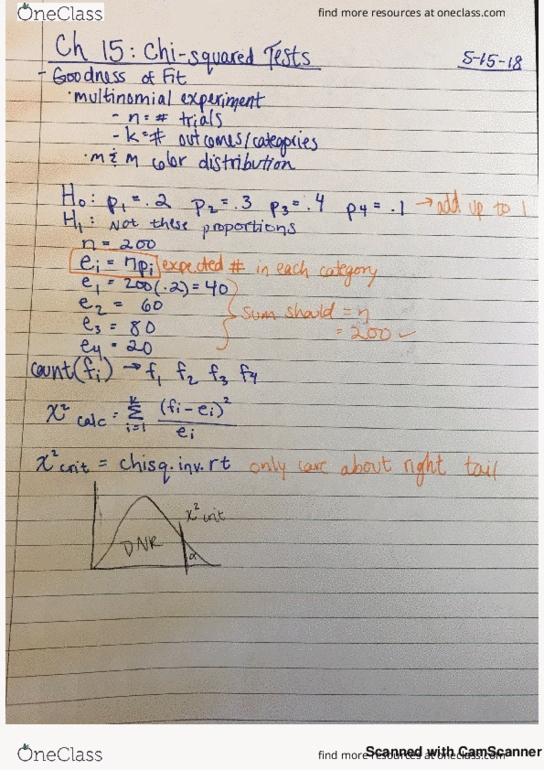 OneClass
find more resources at oneclass.com
Ch 15: Chi-squared Tests 5-15-18
- Goodness of Fit
· multinomial experiment
- n = # trials
- k = # outcomes/categories
· m & m color distribution
H₀: p₁ = .2 p₂ = .3 p₃ = .4 p₄ = .1 → add up to 1
H₁: Not these proportions
n = 200
eᵢ = npᵢ expected # in each category
e₁ = 200(.2) = 40
e₂ = 60
e₃ = 80
e₄ = 20
sum should = n
= 200 ✓
count(fᵢ) → f₁ f₂ f₃ f₄
x² calc = Σ (fᵢ - eᵢ)² / eᵢ
k
i=1
x² crit = chisq.inv.rt only care about right tail
x² crit
DNR
α
OneClass
find more resources at oneclass.com
Scanned with CamScanner